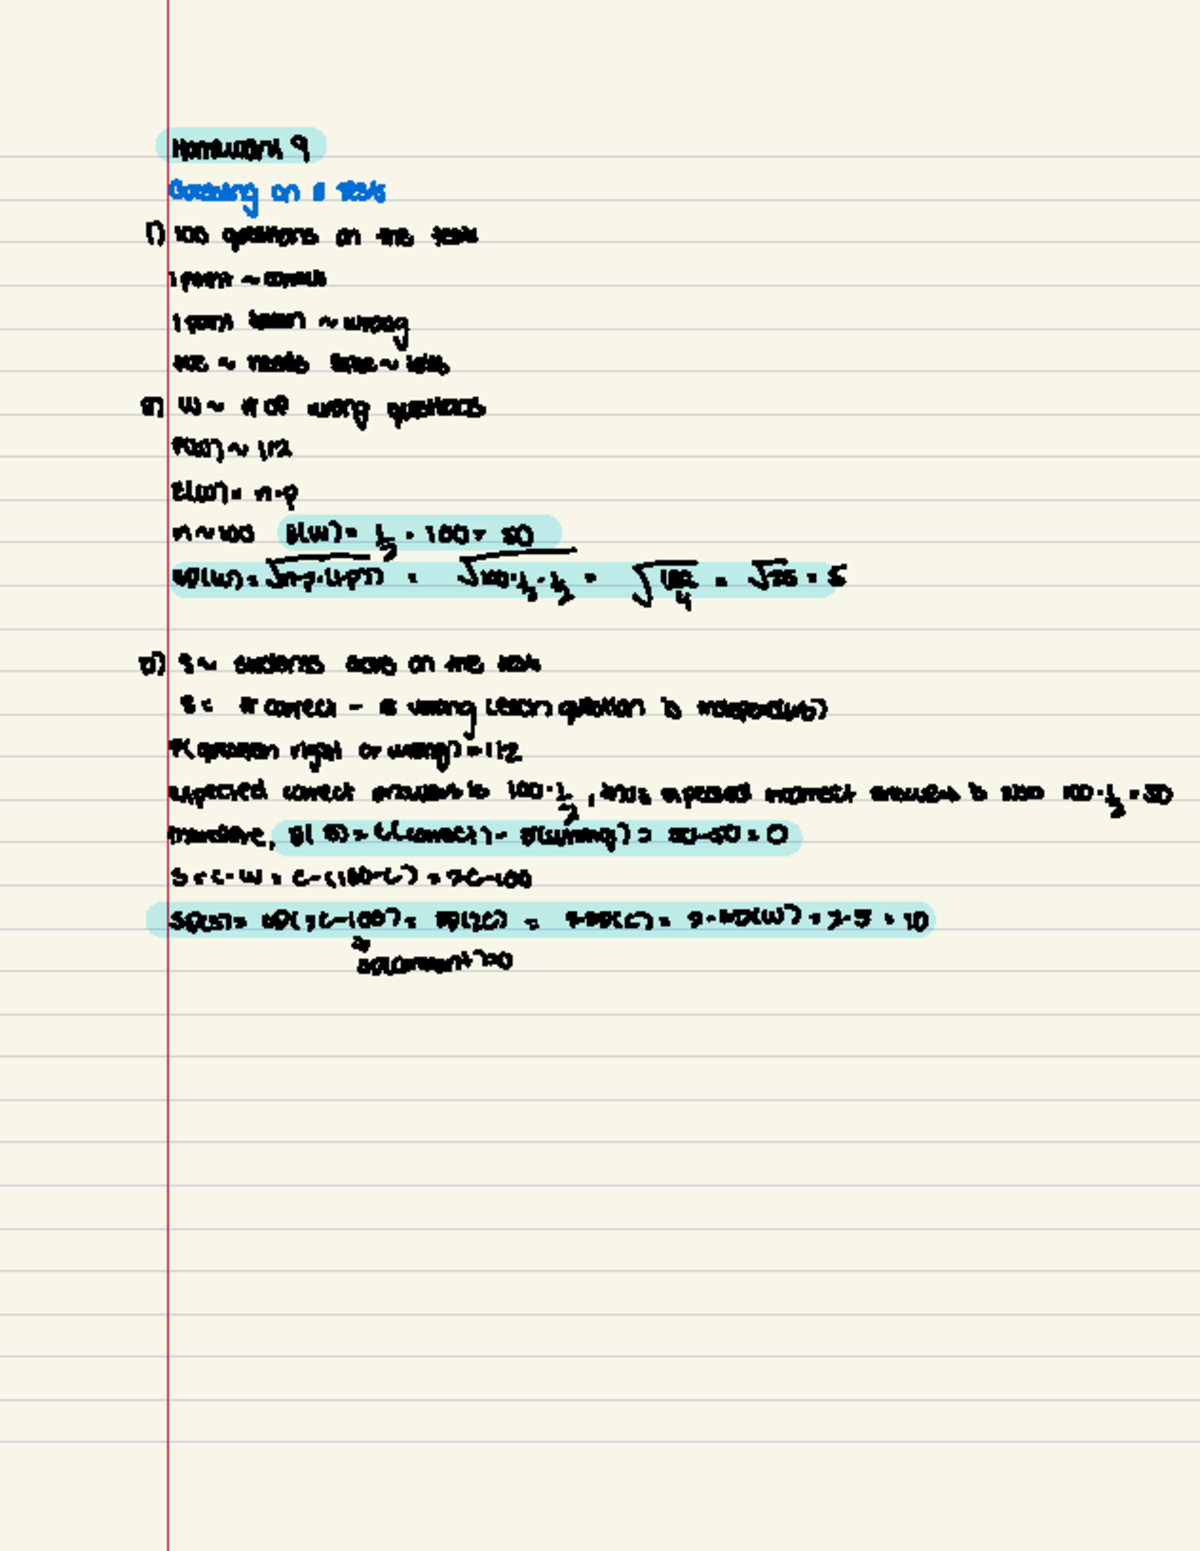 Homework 9
Guessing on a tests
1) 100 questions on the test
1 point ~ correct
1 point taken ~ wrong
~ needs ~
a) W ~ # of wrong questions
~ 1/2
E(W) = n·p
n ~ 100 E(W) = 1/2 · 100 = 50
SD(W) = √n·p·(1-p) = √100·1/2·1/2 = √100/4 = √25 = 5
b) S ~ students on the test
S = # correct - # wrong (each question is independent)
P(question right or wrong) = 1/2
expected correct answers is 100·1/2, expected incorrect answers is also 100·1/2 = 50
therefore, E(S) = E(correct) - E(wrong) = 50-50 = 0
S = C-W = C-(100-C) = 2C-100
SD(S) = SD(2C-100) = SD(2C) = 2·SD(C) = 2·SD(W) = 2·5 = 10
SD(constant) = 0